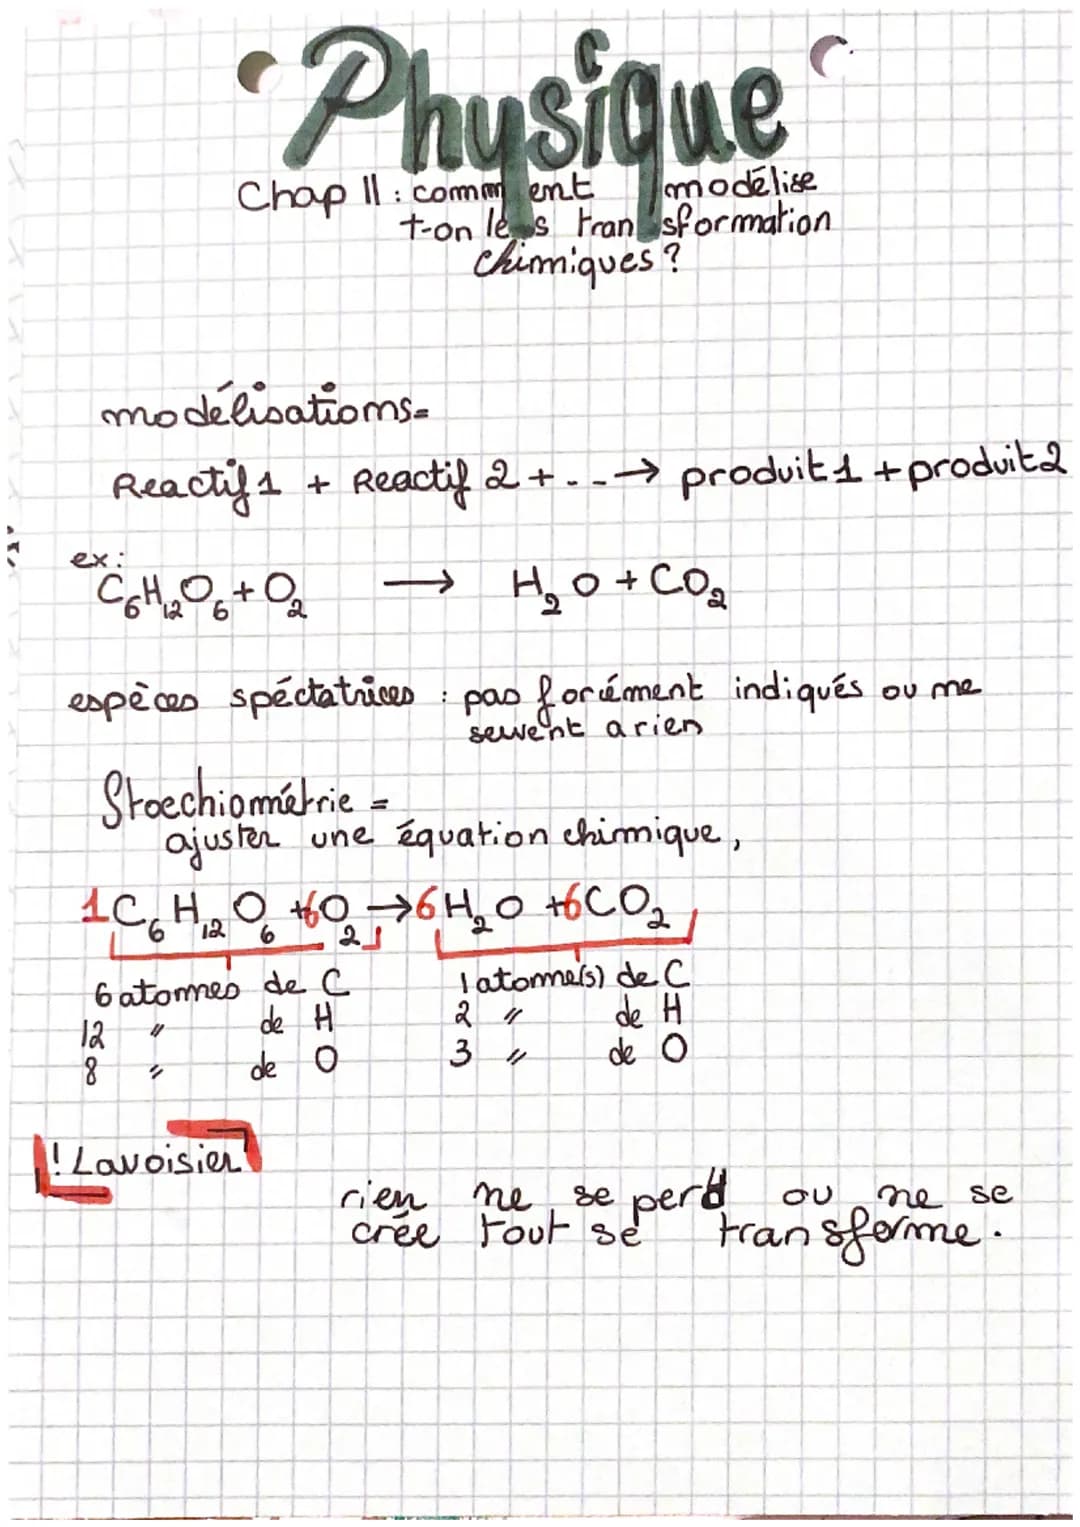 Physique
Chap 11 : comment modélise
t-on les transformation
chimiques ?
modélisations=
Reactif 1 + Reactif 2 + ... → produit 1 + produit 2
ex :
C₆H₁₂O₆ + O₂ → H₂O + CO₂
espèces spéctatrices : pas forcément indiqués ou ne
servent a rien
Stoechiométrie =
ajuster une équation chimique,
1C₆H₁₂O₆ + 6O₂ → 6H₂O + 6CO₂
6 atomes de C 1 atome(s) de C
12 " de H 2 " de H
8 " de O 3 " de O
! Lavoisier
rien ne se perd ou ne se
crée tout se transforme.